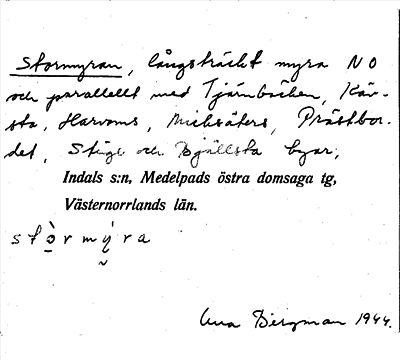 Stormyran, långsträckt myra NO
och parallellt med Tjärnbäcken, Kär-
sta, Harvoms, Nicksäters, Prästbor-
det, Stige och Bjällsta byar,
Indals s:n, Medelpads östra domsaga tg,
Västernorrlands län.
stò̠rmý̰ra
Una Bergman 1944.